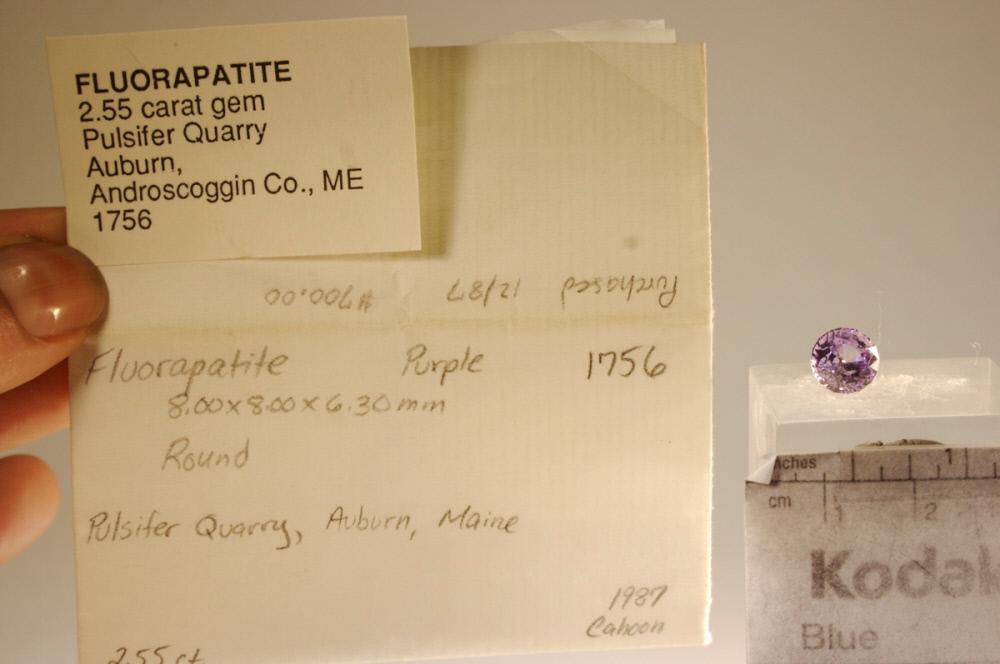 FLUORAPATITE
2.55 carat gem
Pulsifer Quarry
Auburn,
Androscoggin Co., ME
1756
Purchased 12/87 $700.00
Fluorapatite Purple 1756
8.00 x 8.00 x 6.30 mm
Round
Pulsifer Quarry, Auburn, Maine
1987
Cahoon
2.55 ct
inches 1
cm 1 2
Kodak
Blue